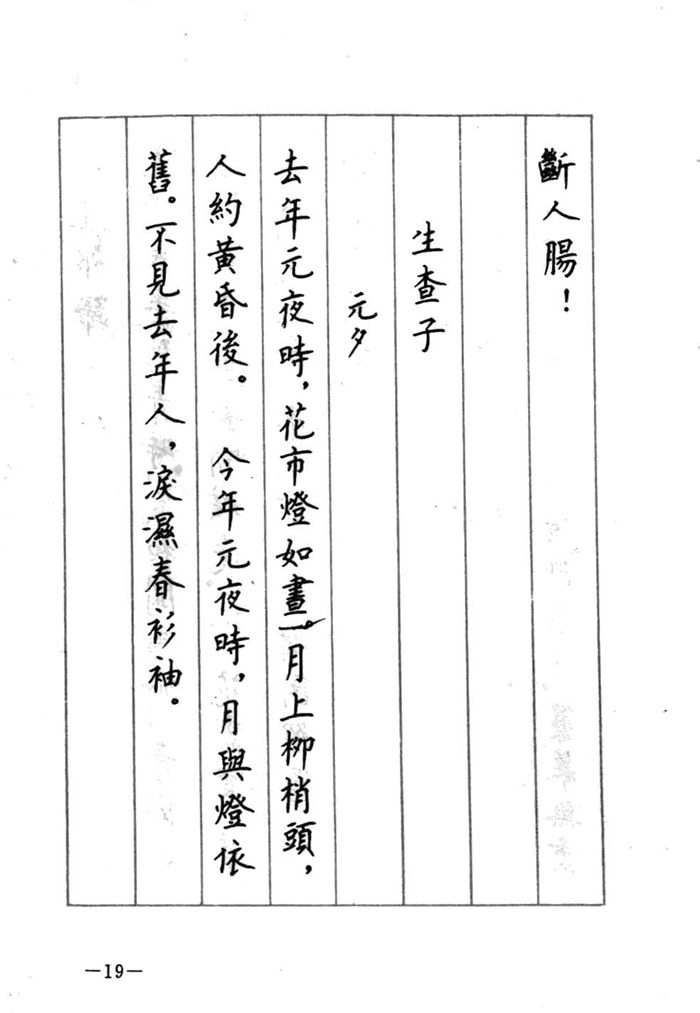 斷人腸！
生查子
元夕
去年元夜時，花市燈如晝。月上柳梢頭，
人約黃昏後。　今年元夜時，月與燈依
舊。不見去年人，淚濕春衫袖。
—19—